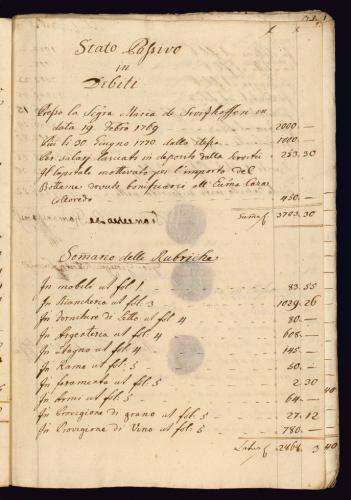 Stato Passivo
in
Debiti
Presso la Sigra Maria de in
data 19 Febro 1769 2000.—
Più li 30 Giugno 1770 dalla stessa 1000.—
Per Salarj lasciati in deposito dalla Servitù 253.30
Il Capitale mottovato per l'importo del
Botteme dovuto bonificarsi all' Casa
Coloredo 450.—
Suma f 3703.30
Somario delle Rubriche
In mobili ut fol: 1 83.55
In Biancheria ut fol: 3 1029.26
In forniture di Letto ut fol: 4 80.—
In Argenteria ut fol: 4 608.—
In Stagno ut fol: 4 145.—
In Rame ut fol: 5 50.—
In ferameata ut fol: 5 2.30
In Armi ut fol: 5 64.—
In Provigione di grano ut fol: 5 27.12
In Provigione di Vino ut fol: 5 780.—
Latus f 2868 3